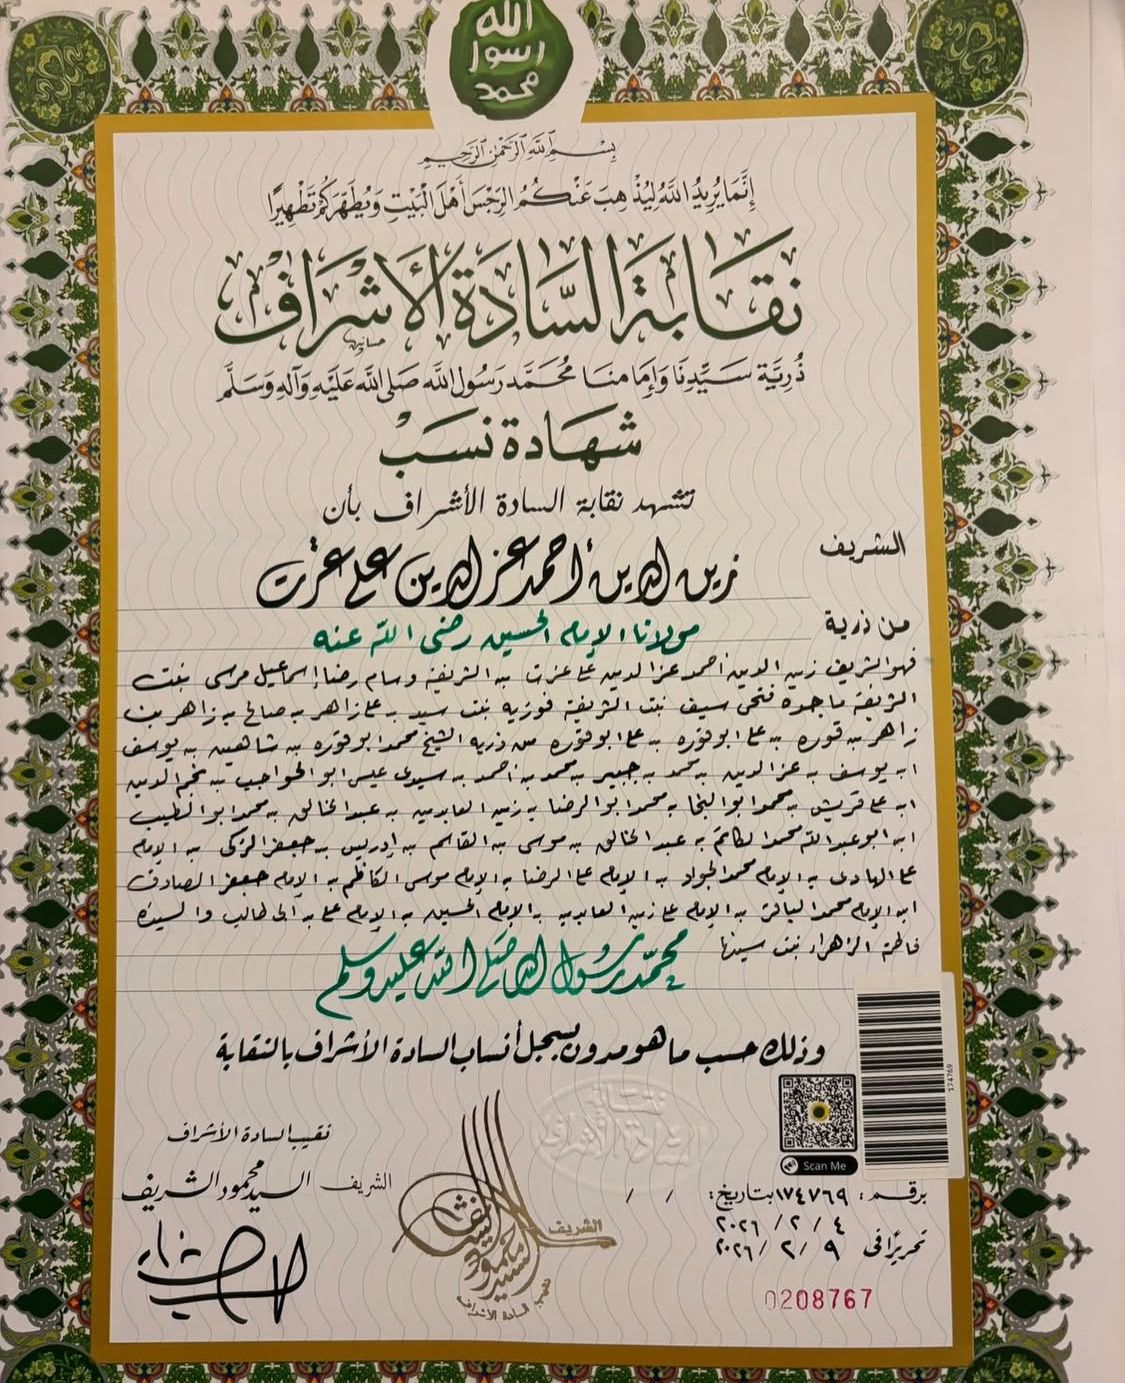 الله
رسول
محمد
بِسْمِ اللَّهِ الرَّحْمَٰنِ الرَّحِيمِ
إِنَّمَا يُرِيدُ اللَّهُ لِيُذْهِبَ عَنْكُمُ الرِّجْسَ أَهْلَ الْبَيْتِ وَيُطَهِّرَكُمْ تَطْهِيرًا
نقابة السَّادَة الأَشْرَاف
ذُرِيَّة سَيِّدِنَا وَإِمَامِنَا مُحَمَّد رَسُول اللَّه صَلَى اللَّه عَلَيْهِ وَآلِهِ وَسَلَّم
شهادة نسَبْ
تشهد نقابة السادة الأشراف بأن
الشريف
زين الدين أحمد عز الدين على عزت
من ذرية
مولانا الإمام الحسين رضى الله عنه
فهو الشريف زين الدين أحمد عز الدين على عزت بن الشريفة وسام رضا إسماعيل مرسى بنت
الشريفة ماجدة فتحى سيف بنت الشريفة فوزيه بنت سيد بن على زاهر بن صالح بن زاهر بن
زاهر بن قوره بن على ابو قوره بن على ابو قوره من ذرية الشيخ محمد ابو قوره بن شاهين بن يوسف
ابن يوسف بن عز الدين بن محمد بن جبير بن محمد بن أحمد بن سيدى عيسى ابو الحواجب بن نجم الدين
ابن على قريش بن محمد ابو النجا بن محمد ابو الرضا بن زين العابدين بن عبد الخالق بن محمد ابو الطيب
ابن ابو عبد الله محمد الكاتم بن عبد الخالق بن موسى بن القاسم بن إدريس بن جعفر الزكى بن الإمام
على الهادى بن الإمام محمد الجواد بن الإمام على الرضا بن الإمام موسى الكاظم بن الإمام جعفر الصادق
ابن الإمام محمد الباقر بن الإمام على زين العابدين بن الإمام الحسين بن الإمام على بن ابى طالب والسيدة
فاطمة الزهراء بنت سيدنا
محمّد رسول الله صلى الله عليه وسلم
وذلك حسب ما هو مدون بسجل أنساب السادة الأشراف بالنقابة
174769
Scan Me
نقابة
السادة الأشراف
نقيب السادة الأشراف
الشريف السيد محمود الشريف
الشريف
نقيب السادة الأشراف
برقم: ١٧٤٧٦٩ بتاريخ: / /
٤ / ٢ / ٢٠٢٦
تحريرًا فى ٩ / ٢ / ٢٠٢٦
0208767